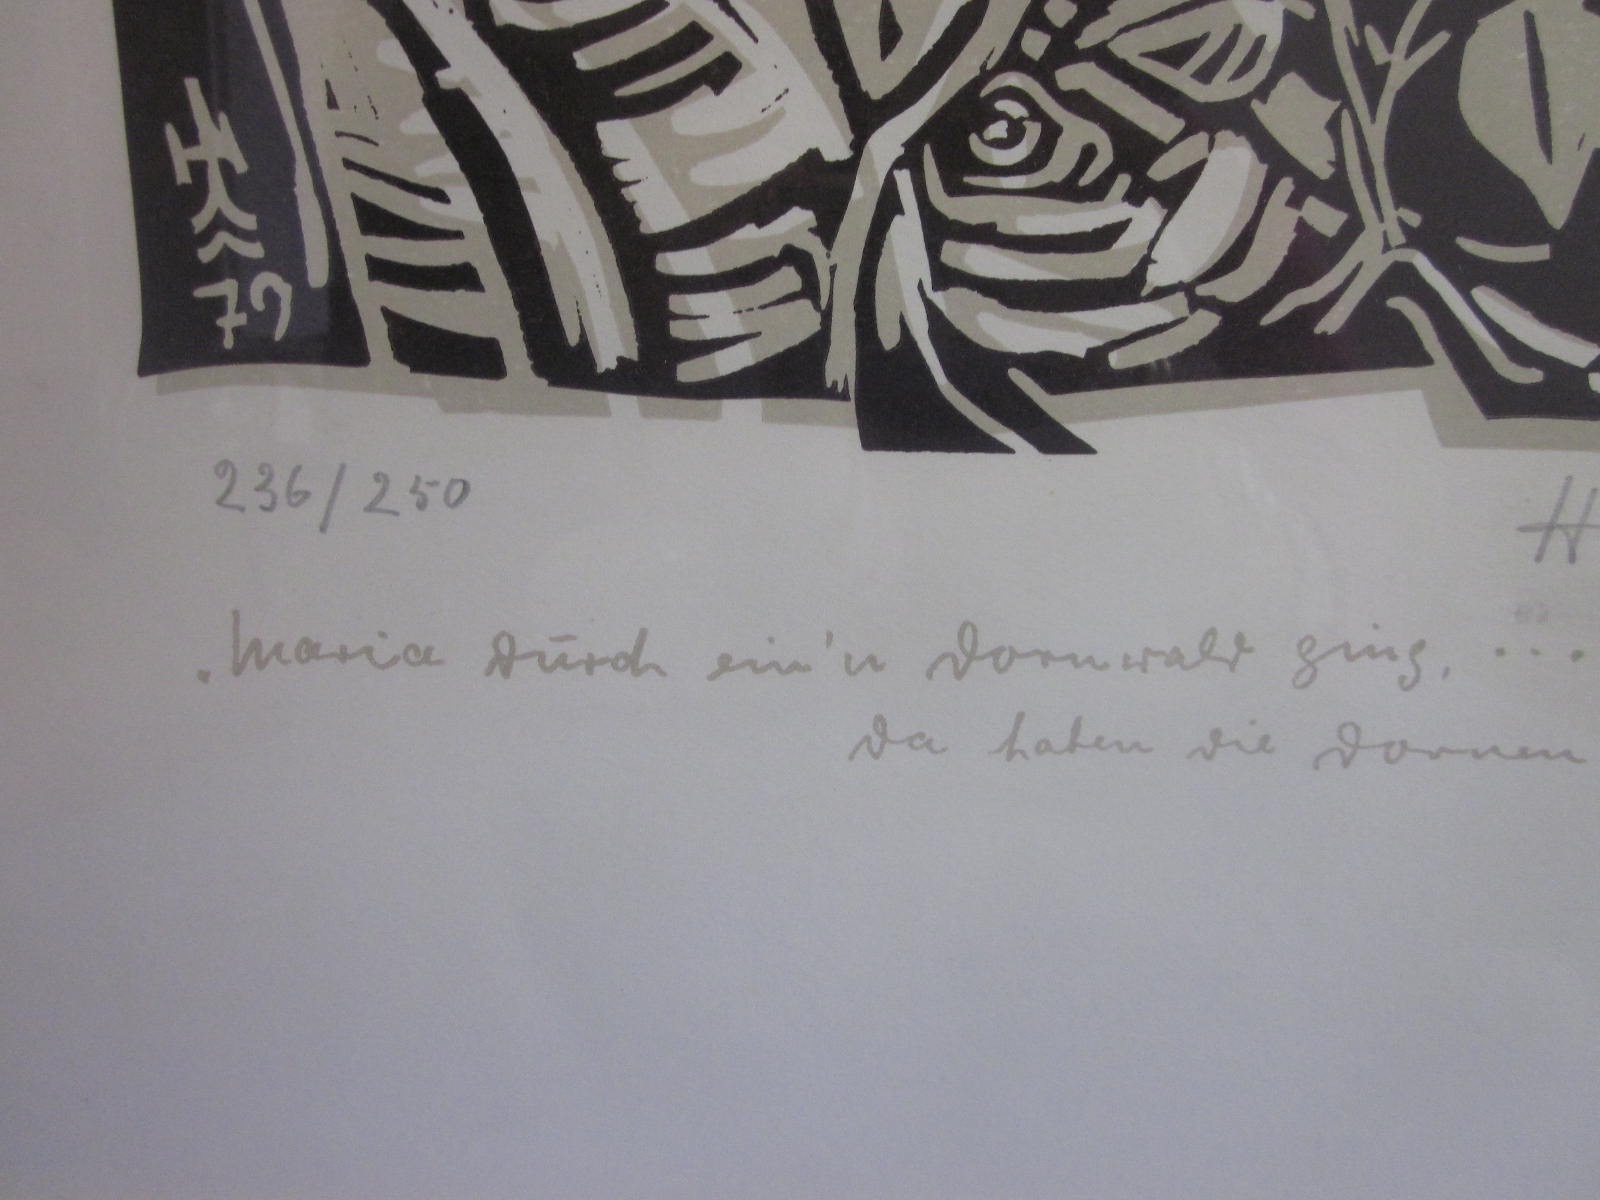 79
236/250 H
„Maria durch ein'n Dornwald ging, ...
da haben die Dornen